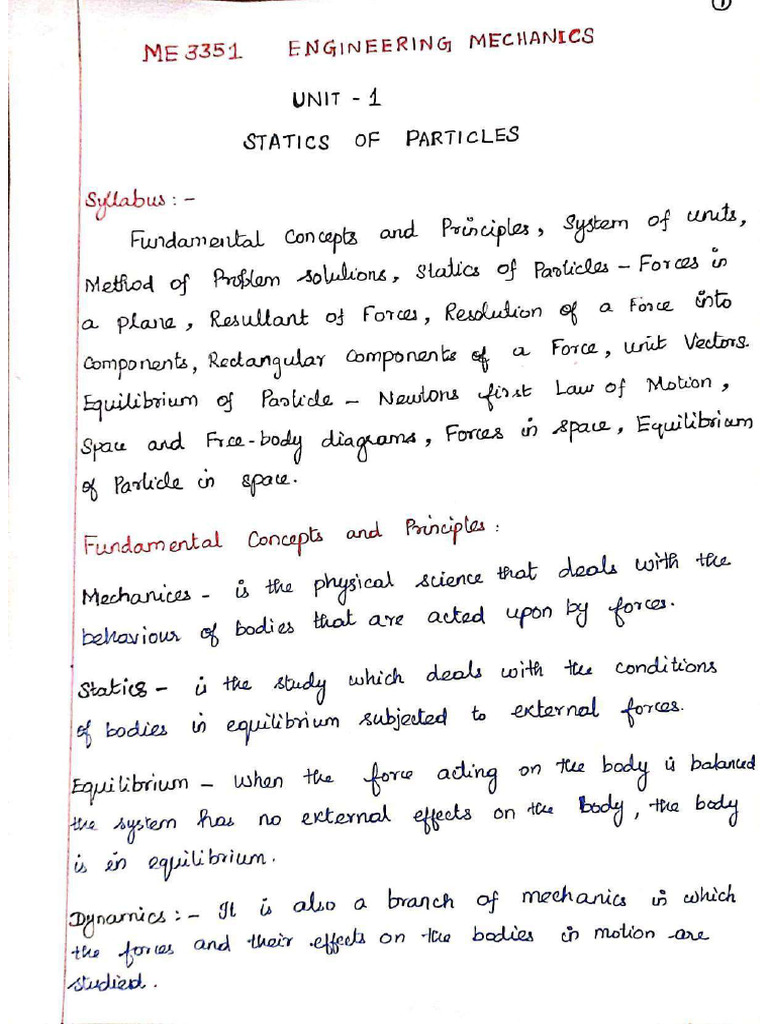 1
ME 3351 ENGINEERING MECHANICS
UNIT - 1
STATICS OF PARTICLES
Syllabus : -
Fundamental Concepts and Principles, System of units,
Method of Problem solutions, Statics of Particles - Forces in
a plane, Resultant of Forces, Resolution of a Force into
Components, Rectangular Components of a Force, unit Vectors.
Equilibrium of Particle - Newtons first Law of Motion,
Space and Free-body diagrams, Forces in space, Equilibrium
of Particle in space.
Fundamental Concepts and Principles :
Mechanices - is the physical science that deals with the
behaviour of bodies that are acted upon by forces.
Statics - is the study which deals with the conditions
of bodies in equilibrium subjected to external forces.
Equilibrium - When the force acting on the body is balanced
the system has no external effects on the body, the body
is in equilibrium.
Dynamics : - It is also a branch of mechanics in which
the forces and their effects on the bodies in motion are
studied.